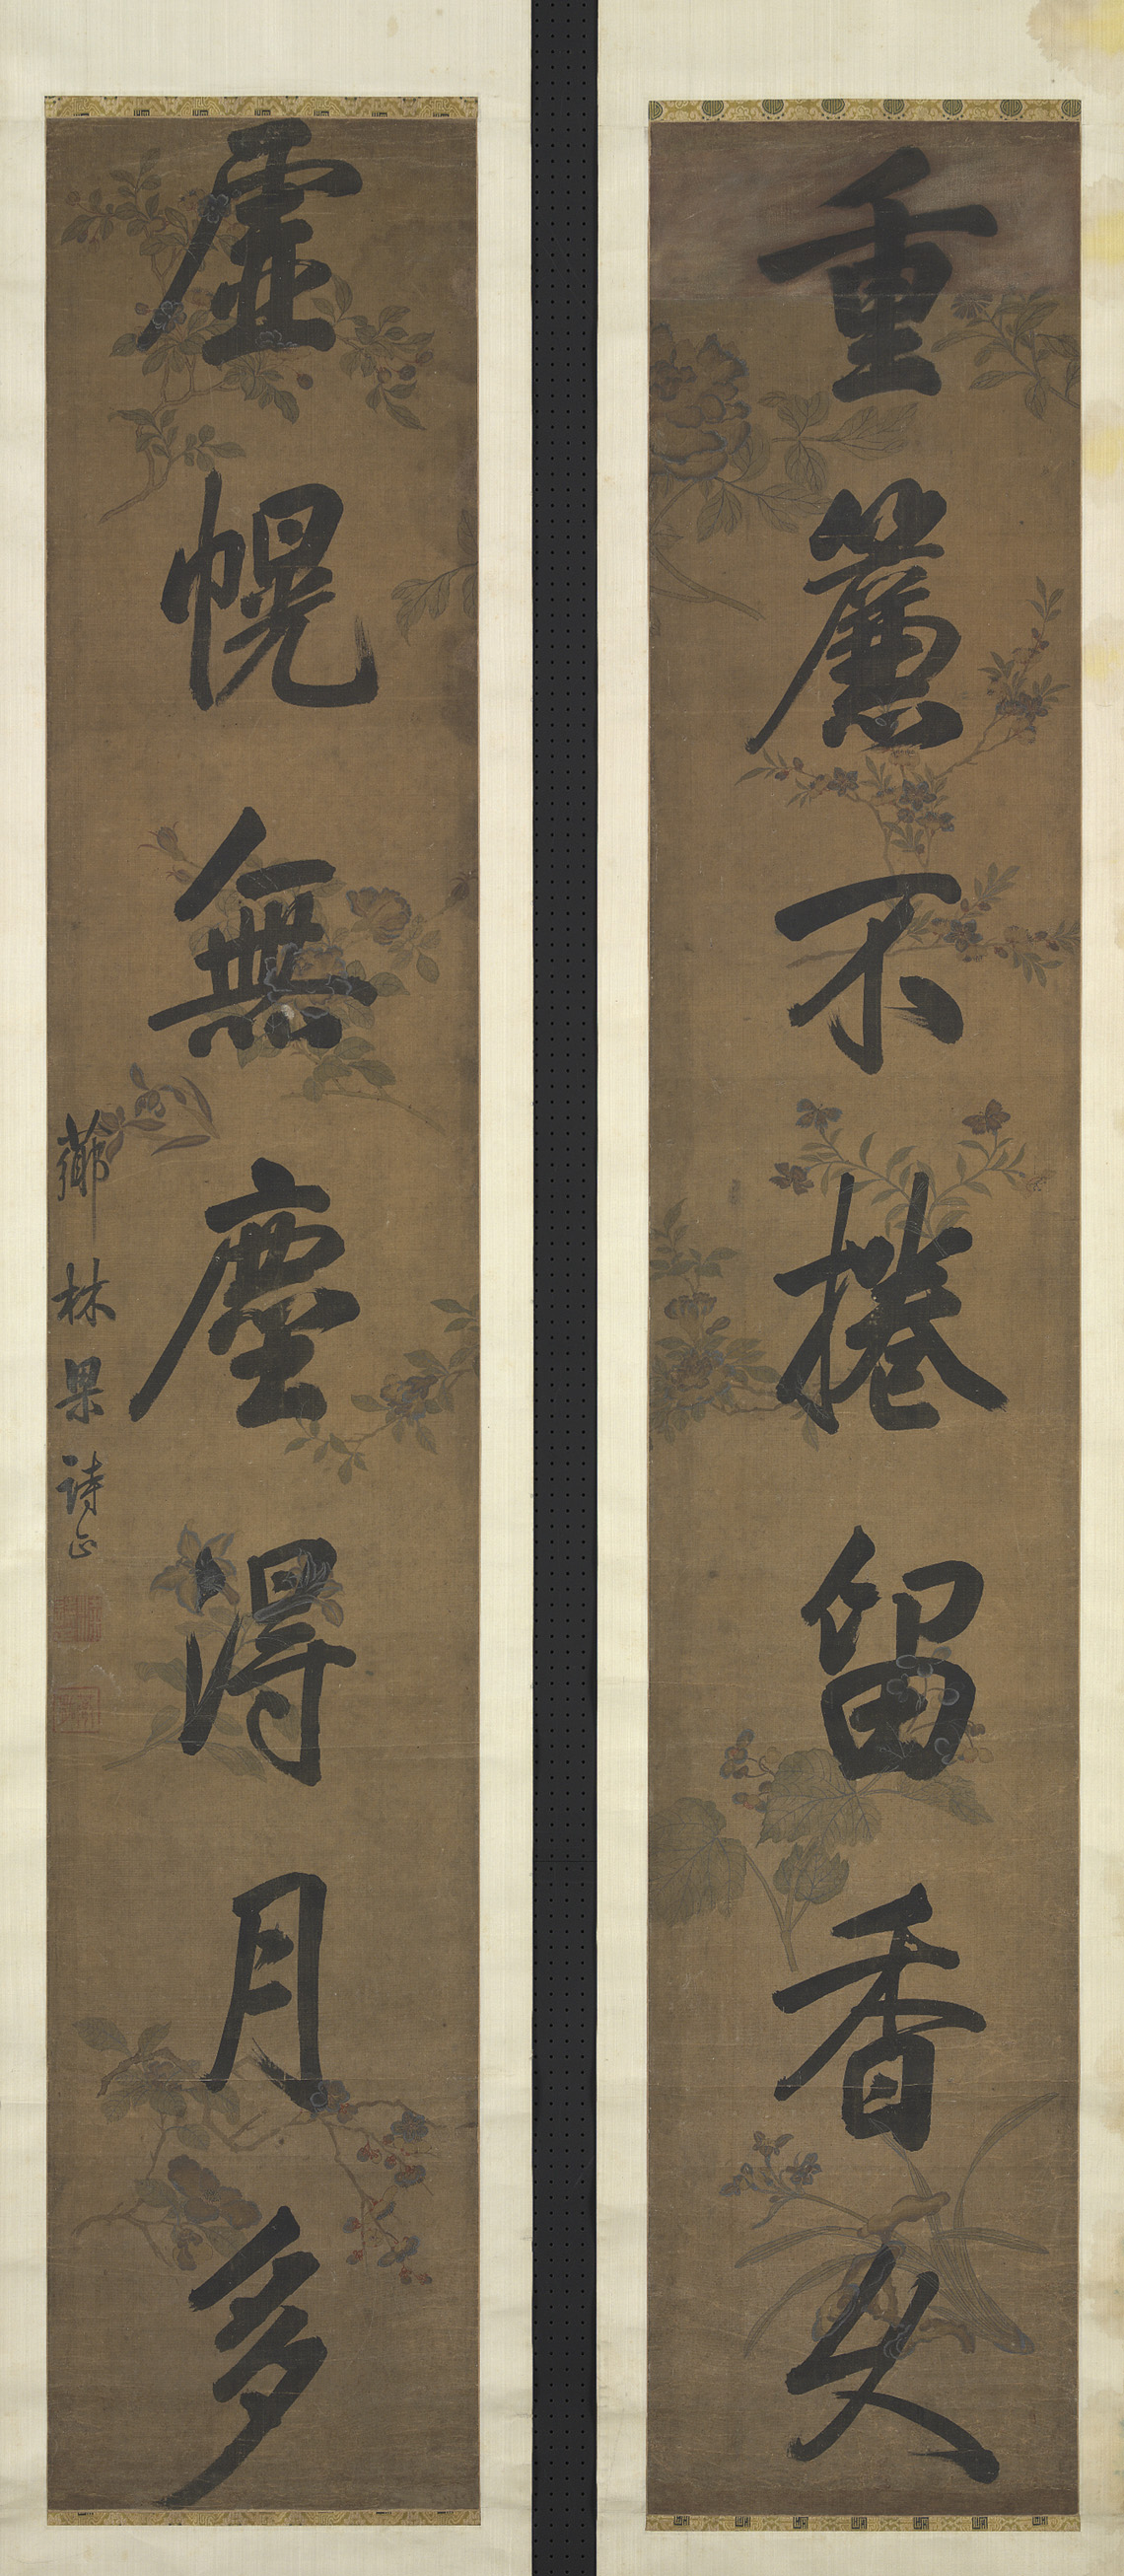 重簾不捲留香久
虛幌無塵得月多
薌林梁詩正